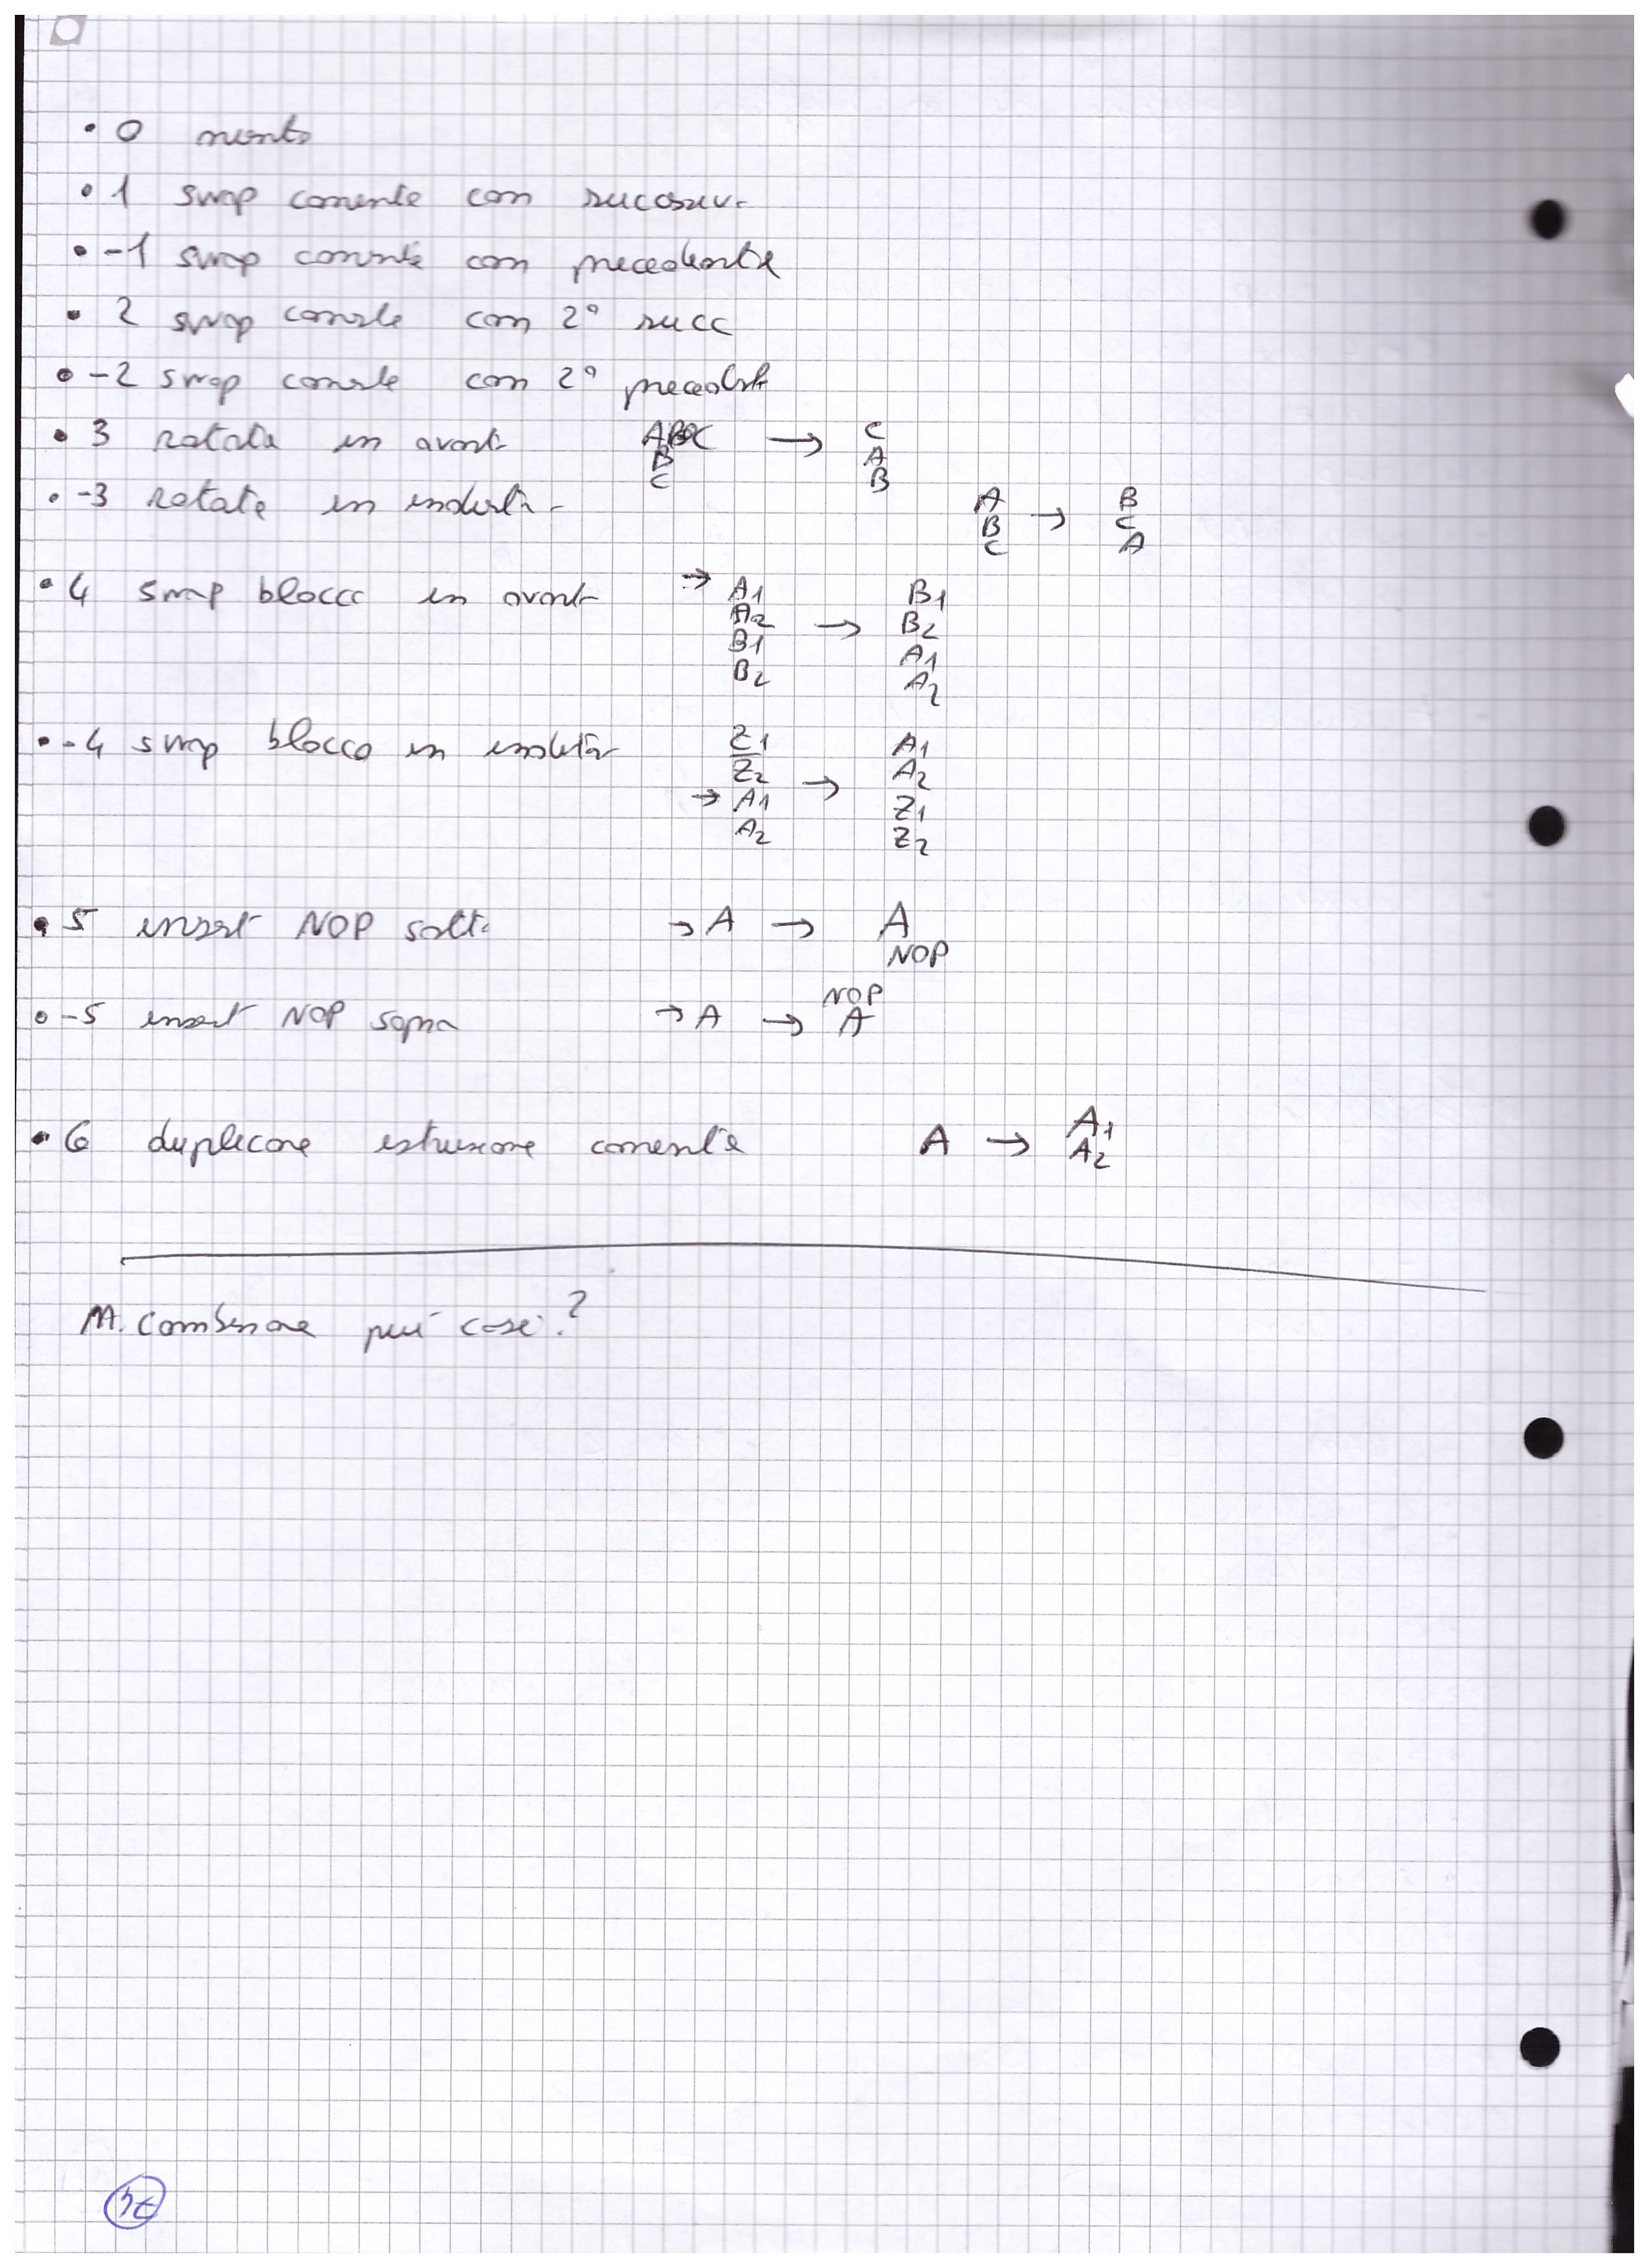 • 0 niente
• 1 swap corrente con successiv.
• -1 swap corrente con precedente
• 2 swap corrente con 2° succ
• -2 swap corrente con 2° precedente
• 3 rotate in avanti A → C
B A
C B
• -3 rotate in indietro A → B
B C
C A
• 4 swap blocco in avanti → A1 B1
A2 → B2
B1 A1
B2 A2
• -4 swap blocco in indietro Z1 A1
Z2 → A2
→ A1 Z1
A2 Z2
• 5 insert NOP sotto → A → A
NOP
• -5 insert NOP sopra → A → NOP
A
• 6 duplicare istruzione corrente A → A1
A2
M. Combinare più cose?